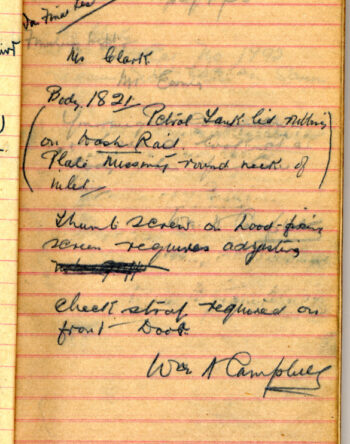 In Final Les
Mr Clark
Mr Evans
Body. 1821
Petrol Tank lid rubbing
on Wash Rail.
Plate missing round neck of
inlet
Thumb screw on hood-fixing
screen requires adjusting
check strap required on
front Door.
Wm A Campbell